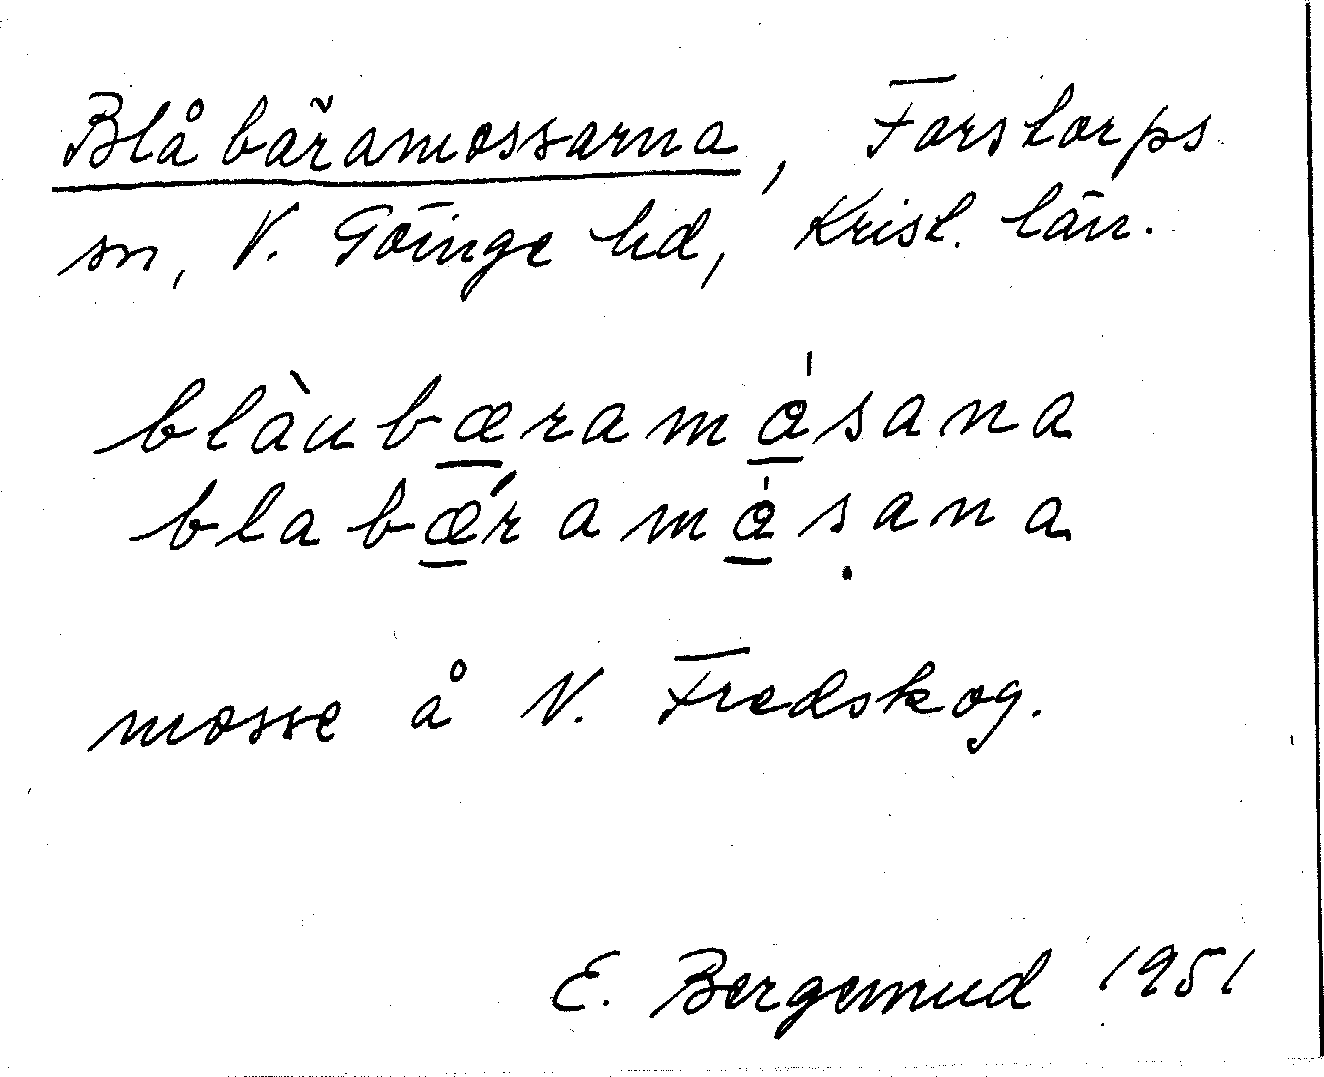 Blåbäramossarna, Farstorps
sn, V. Göinge hd, Krist. län.
blàubæramå̍sana
blabǽramå̍ṣana
mosse å N. Fredskog.
E. 1951